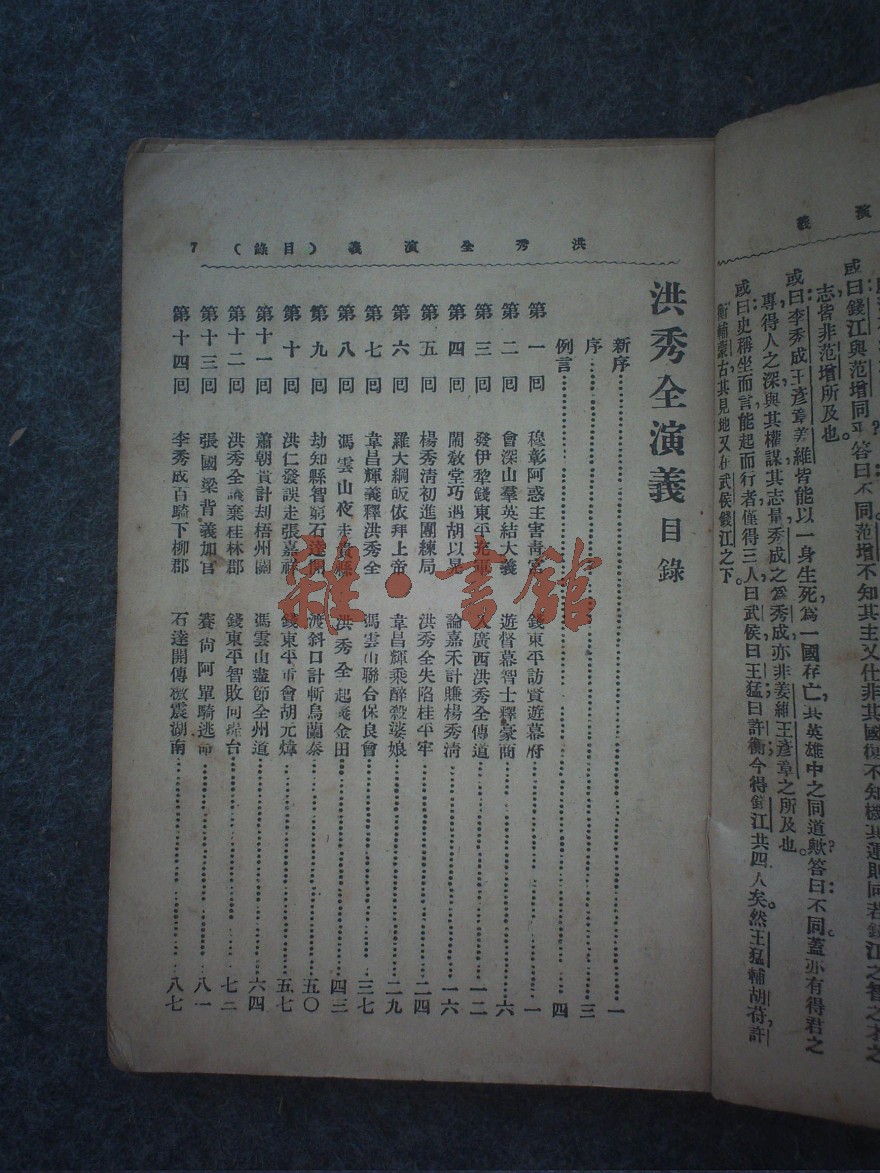 演 義
或曰錢江與范增同乎?答曰不同范增不知其主又仕非其國
志皆非范增所及也。
或曰李秀成王彥章姜維皆能以一身生死爲一國存亡其英雄中之同道歟?答曰不同。蓋亦有得君之
專得人之深與其權謀其志量秀成之爲秀成亦非姜維王彥章之所及也。
或曰史稱坐而言能起而行者僅得三人曰武侯曰王猛曰許衡今得錢江共四人矣。然王猛輔胡苻許
衡輔蒙古其見地又在武侯錢江之下。
洪秀全演義(目錄) 7
洪秀全演義目錄
新序 一
序 三
例言 四
第一回 穆彰阿惑主害 錢東平訪賢遊幕府 一
第二回 會深山羣英結大義 遊督幕智士釋豪商 六
第三回 發伊犂錢東平充軍 入廣西洪秀全傳道 一二
第四回 鬧敎堂巧遇胡以晃 論嘉禾計賺楊秀淸 一六
第五回 楊秀淸初進團練局 洪秀全失陷桂平牢 二四
第六回 羅大綱皈依拜上帝 韋昌輝乘醉殺婆娘 二九
第七回 韋昌輝義釋洪秀全 馮雲山聯合保良會 三七
第八回 馮雲山夜走貴縣 洪秀全起義金田 四三
第九回 劫知縣智窮石達開 渡斜口計斬烏蘭泰 五〇
第十回 洪仁發誤走張嘉祥 錢東平重會胡元煒 五七
第十一回 蕭朝貴計劫梧州關 馮雲山盡節全州道 六四
第十二回 洪秀全議棄桂林郡 錢東平智敗向榮台 七二
第十三回 張國梁背義加官 賽尙阿單騎逃命 八一
第十四回 李秀成百騎下柳郡 石達開傳檄震湖南 八七
雜·書館